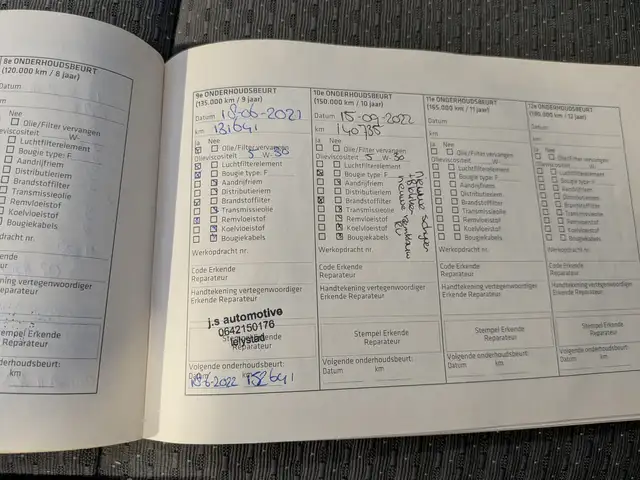 8e ONDERHOUDSBEURT
(120.000 km / 8 jaar)
Datum
Nee
Olie/Filter vervangen
W-
Luchtfilterelement
Bougie type: F
Aandrijfriem
Distributieriem
Brandstoffilter
Transmissieolie
Remvloeistof
Koelvloeistof
Bougiekabels
Erkende
Reparateur
Stempel Erkende
Reparateur
onderhoudsbeurt:
km
9e ONDERHOUDSBEURT
(135.000 km / 9 jaar)
Datum 18-06-2021
km 131641
Ja Nee
Olie/Filter vervangen
Olieviscositeit 5 W-30
Luchtfilterelement
Bougie type: F
Aandrijfriem
Distributieriem
Brandstoffilter
Transmissieolie
Remvloeistof
Koelvloeistof
Bougiekabels
Werkopdracht nr.
Code Erkende
Reparateur
Handtekening vertegenwoordiger
Erkende Reparateur
j.s automotive
0642150176
lelystad
Reparateur
Volgende onderhoudsbeurt:
Datum km
18-6-2022 152641
10e ONDERHOUDSBEURT
(150.000 km / 10 jaar)
Datum 15-09-2022
km 140735
Ja Nee
Olie/Filter vervangen
Olieviscositeit 5 W-30
Luchtfilterelement
Bougie type: F
Aandrijfriem
Distributieriem
Brandstoffilter
Transmissieolie
Remvloeistof
Koelvloeistof
Bougiekabels
nieuwe
Werkopdracht nr.
Code Erkende
Reparateur
Handtekening vertegenwoordiger
Erkende Reparateur
Stempel Erkende
Reparateur
Volgende onderhoudsbeurt:
Datum km
11e ONDERHOUDSBEURT
(165.000 km / 11 jaar)
Datum
km
Ja Nee
Olie/Filter vervangen
Olieviscositeit W-
Luchtfilterelement
Bougie type: F
Aandrijfriem
Distributieriem
Brandstoffilter
Transmissieolie
Remvloeistof
Koelvloeistof
Bougiekabels
Werkopdracht nr.
Code Erkende
Reparateur
Handtekening vertegenwoordiger
Erkende Reparateur
Stempel Erkende
Reparateur
Volgende onderhoudsbeurt:
Datum km
12e ONDERHOUDSBEURT
(180.000 km / 12 jaar)
Datum
km
Ja Nee
Olie/Filter vervangen
Olieviscositeit W-
Luchtfilterelement
Bougie type: F
Aandrijfriem
Distributieriem
Brandstoffilter
Transmissieolie
Remvloeistof
Koelvloeistof
Bougiekabels
Werkopdracht nr.
Code Erkende
Reparateur
Handtekening vertegenwoordiger
Erkende Reparateur
Stempel Erkende
Reparateur
Volgende onderhoudsbeurt:
Datum km